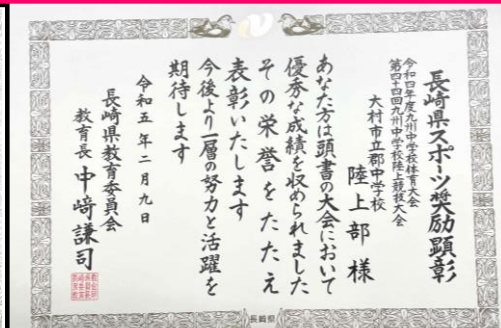 長崎県スポーツ奨励顕彰
令和四年度九州中学校体育大会
第四十四回九州中学校陸上競技大会
大村市立郡中学校
陸上部 様
あなた方は頭書の大会において
優秀な成績を収められました
その栄誉をたたえ
表彰いたします
今後より一層の努力と活躍を
期待します
令和五年二月九日
長崎県教育委員会
教育長 中﨑謙司
長崎県